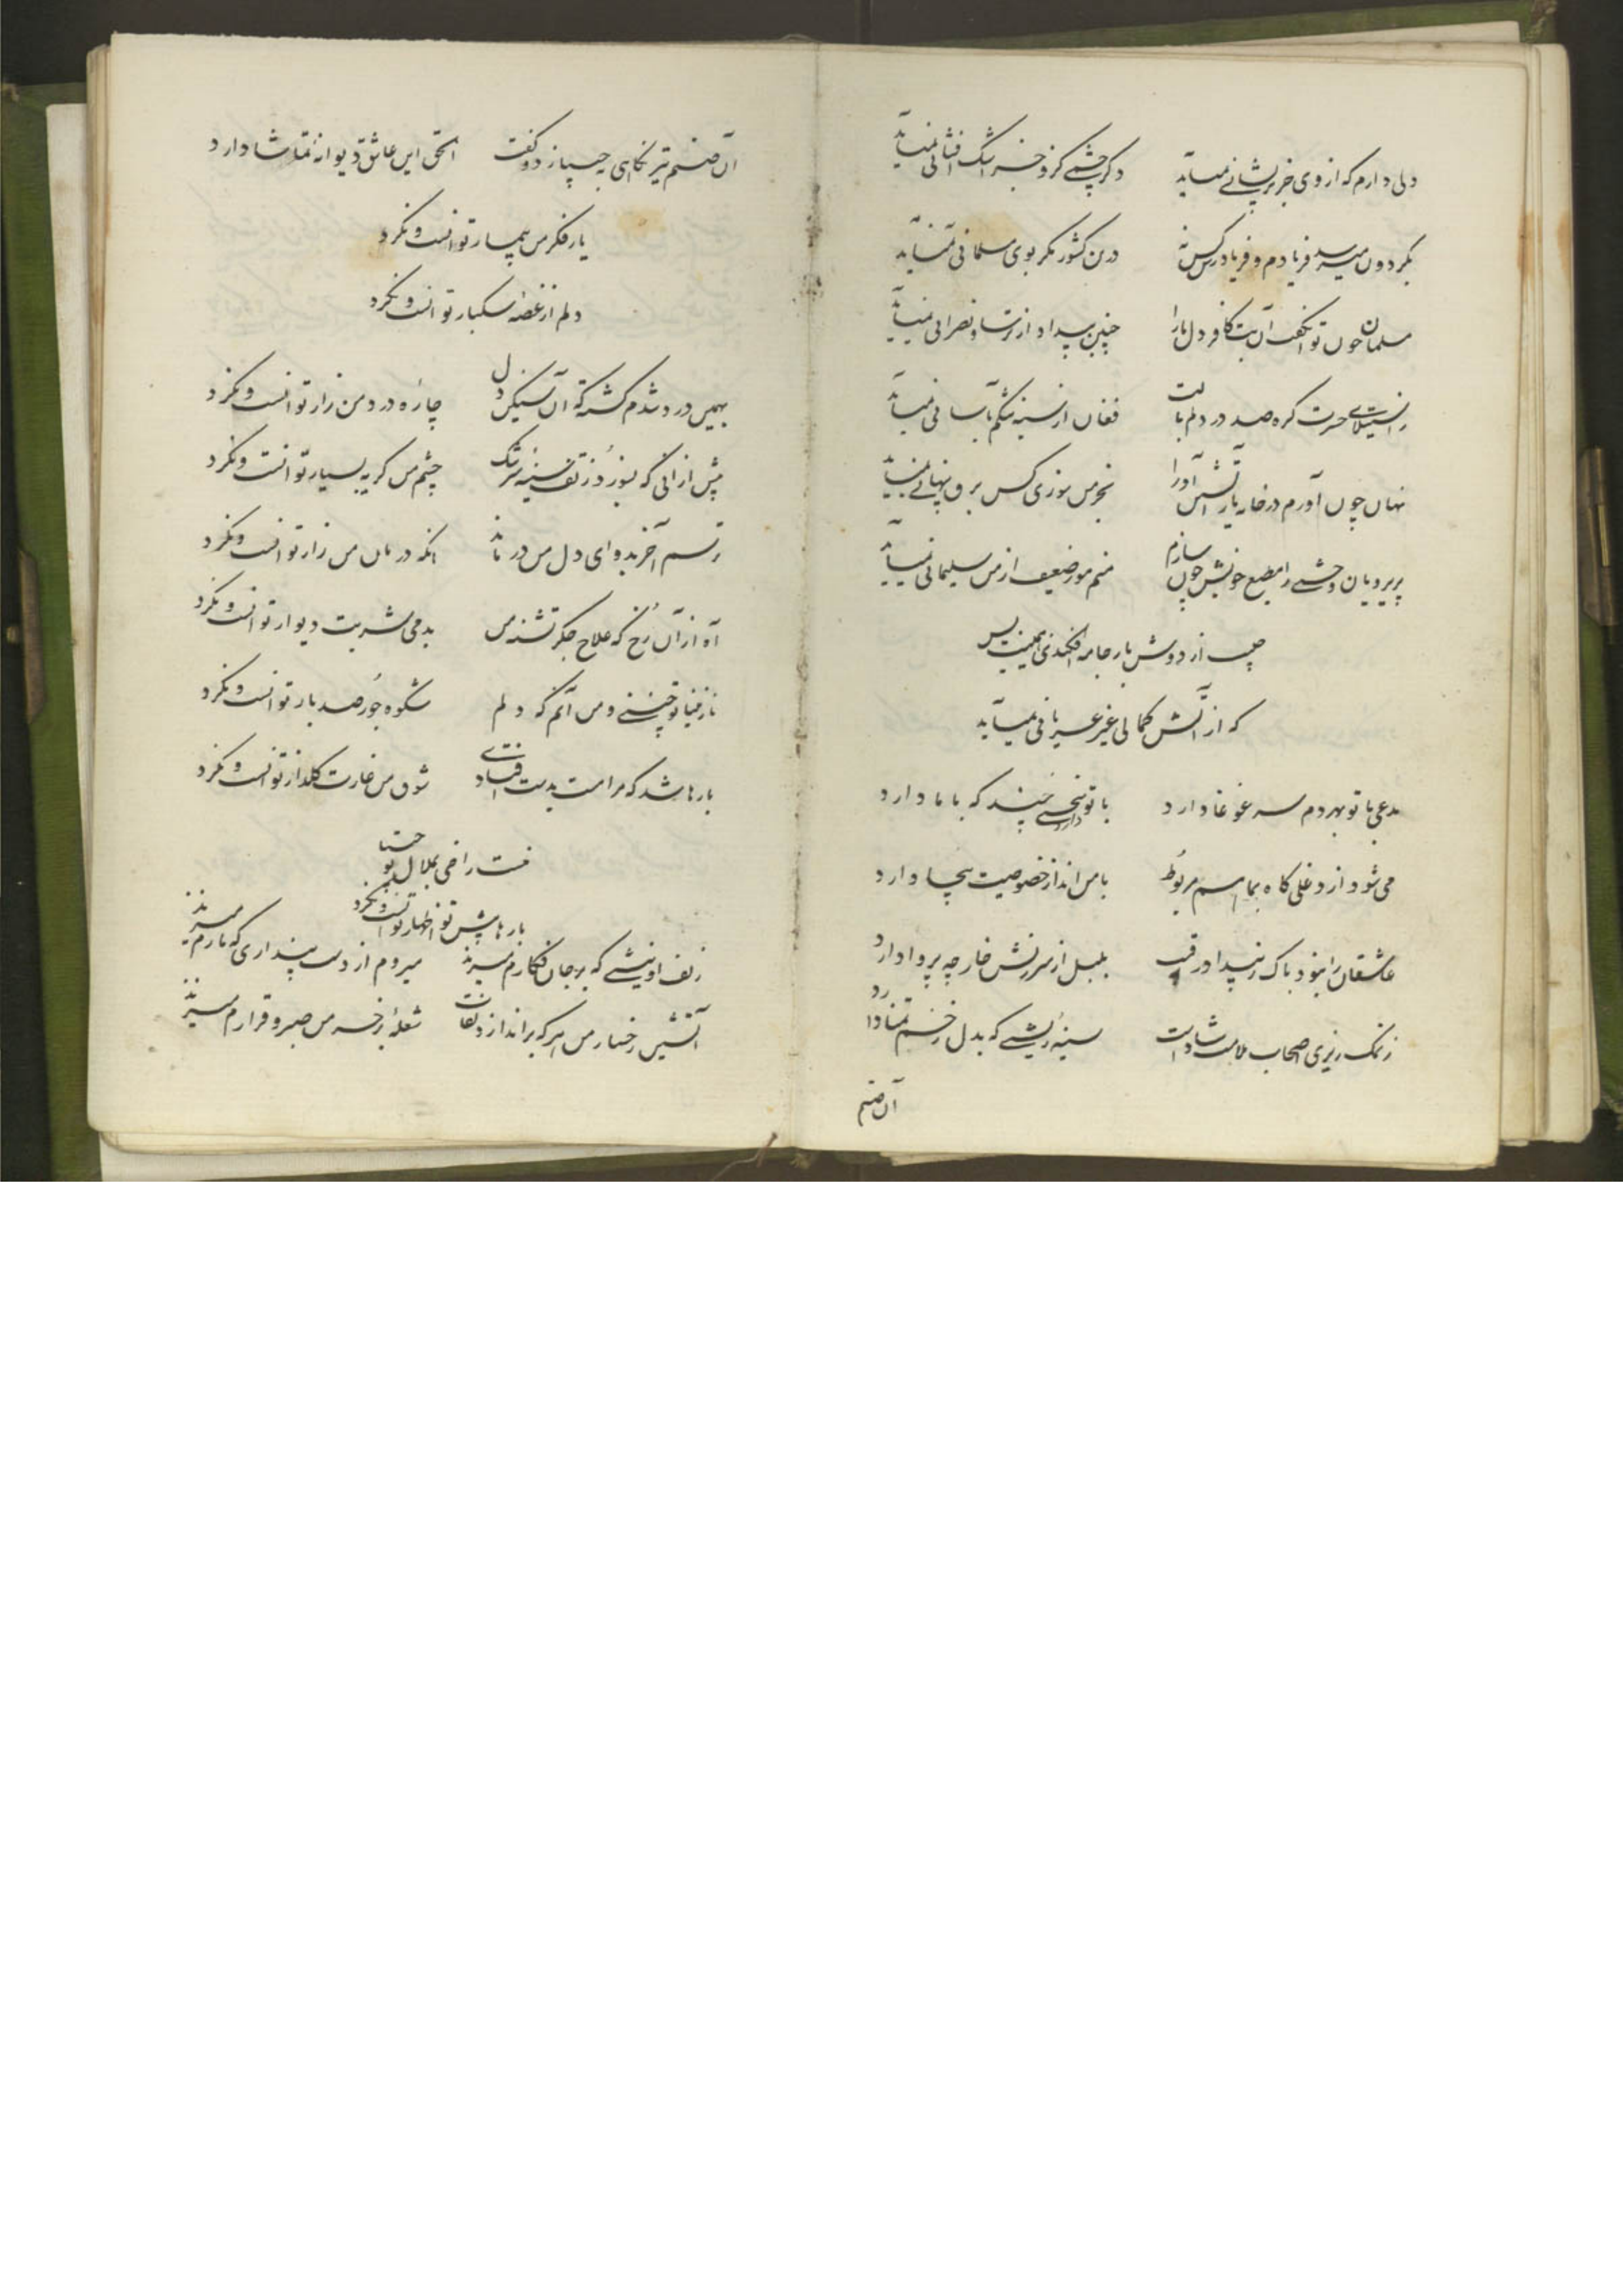 دلی دارم که از وی جز پریشانی نمیآید دکر چشمی کزو جز اشک افشانی نمیآید
بکردون میرسد فریادم و فریادرس کس نه درین کشور مکر بوی مسلمانی نمیآید
مسلمان چون توان کفت آن بت کافر دل ما را چنین بیداد از ترسا و نصرانی نمیآید
ز استیلای حسرت کره صد در دلم بالت فغان از سینه تنکم بآسانی نمیآید
نهان چون آورم در خانه یار آتشین آور را بخرمن سوزی کس برق پنهانی نمیآید
پریرویان وحشی را مطیع خویش چون سازم منم مور ضعیف از من سلیمانی نمیآید
از دوش بار جامه افکندی همینت بس
که از آتش کمالی غیر عریانی نمیآید
مدعی با تو بهر دم سر غوغا دارد با تو دارد سخنی چند که با ما دارد
می شود از دغلی کاه بما هم مربوط با من انداز خصوصیت بیجا دارد
عاشقان را نبود باک ز بیداد رقیب بلبل از سرزنش خار چه پروا دارد
ز نمک ریزی اصحاب ملامت شادست سینه ریشی که بدل زخم تمنا دارد
آن صنم
آن صنم تیر نکاهی بمن زد و کفت الحق این عاشق دیوانه تماشا دارد
یار فکر من بیمار توانست و نکرد
دلم از غصه سبکبار توانست و نکرد
بهمین درد شدم کشته که آن سنکین دل چاره درد من زار توانست و نکرد
پیش ازانی که بسوزد ز تف سینه سرشک چشم من کریه بسیار توانست و نکرد
ترسم آخر بدوای دل من درماند انکه درمان من زار توانست و نکرد
آه از آن رخ که علاج جکر تشنه من بدمی شربت دیدار توانست و نکرد
نازنینا تو چنینی و من آنم که دلم شکوه جور صد بار توانست و نکرد
بارها شد که مرا مست بدست افتادی شوق من غارت کلزار توانست و نکرد
نیست راضی بملال تو
بارها پیش تو اظهار توانست و نکرد
زلف او نیشی که بر جان فکارم میزند میروم از دست پنداری که مارم میزند
آتشین رخسار من هر که براندازد نقاب شعله بر خرمن صبر و قرارم میزند